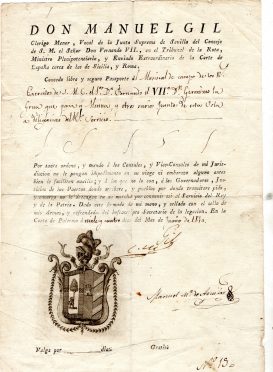 DON MANUEL GIL
Clerigo Menor, Vocal de la Junta Suprema de Sevilla del Consejo
de S. M. el Señor Don Fernando VII., en el Tribunal de la Rota,
Ministro Plenipotenciario, y Enviado Extraordinario de la Corte de
España cerca de las de Sicilia, y Roma,
Concedo libre y seguro Pasaporte al Mariscal de campo de los Rs
Exercitos de S. M. C. el Sr. Dn. Fernando el VIIº Dn. Geronimo la
que pasa y otros varios de esta Isla
del Rl. Servicio.
Por tanto ordeno, y mando à los Consules, y Vice-Consules de mi Juris-
diccion no le pongan impedimento en su viage ni embarazo alguno antes
bien le faciliten auxilios; y à los que no lo son, à los Governadores, Jus-
ticias de los Puertos donde arribare, y pueblos por donde transitare pido,
y encargo no le detengan en su marcha por convenir en el Servicio del Rey
y de la Patria. Dado este firmado de mi mano, y sellado con el sello
de mis Armas, y refrendado del infrascripto Secretario de la legacion. En
la Corte de Palermo à veinte y quatro del Mes de 1810.
Gil
Manuel
Valga por dias. Gratis
Nº. 13